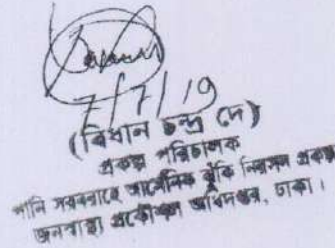 7/7/19
(বিধান চন্দ্র দে)
প্রকল্প পরিচালক
পানি সরবরাহে আর্সেনিক ঝুঁকি নিরসন প্রকল্প
জনস্বাস্থ্য প্রকৌশল অধিদপ্তর, ঢাকা।